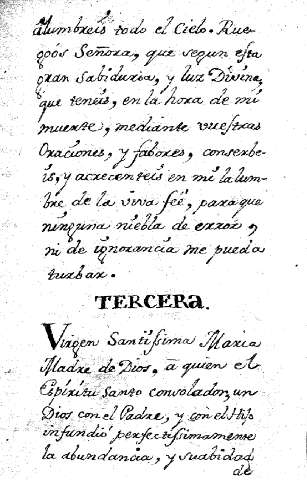 alumbreis todo el Cielo. Rue-
goos Señora, que segun esta
gran Sabiduria, y luz Divina,
que teneis, en la hora de mi
muerte, mediante vuestras
Oraciones, y fabores, conserbe-
is, y acrecenteis en mi la lum-
bre de la viva feé, para que
ninguna niebla de error,
ni de ignorancia me pueda
turbar.
TERCERA.
Virgen Santissima Maria
Madre de Dios, â quien el
Espiritu Santo consolador, un
Dios con el Padre, y con el Hijo
infundió perfectissimamente
la abundancia, y suabidad
de